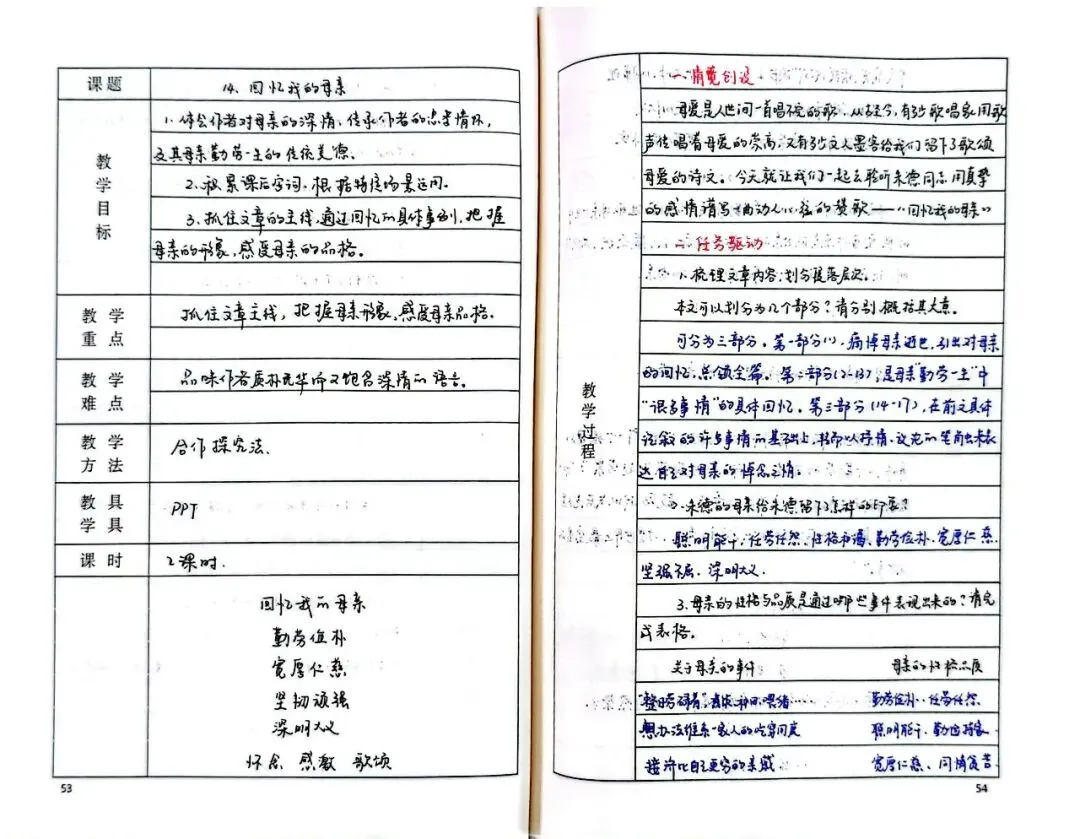 课题
14. 回忆我的母亲
教学目标
1. 体会作者对母亲的深情，传承作者的忠孝情怀，
及其母亲勤劳一生的传统美德。
2. 积累课后字词，根据特定场景运用。
3. 抓住文章的主线，通过回忆的具体事例，把握
母亲的形象，感受母亲的品格。
教学重点
抓住文章主线，把握母亲形象，感受母亲品格。
教学难点
品味作者质朴无华而又饱含深情的语言。
教学方法
合作探究法.
教具学具
PPT
课时
2课时.
回忆我的母亲
勤劳俭朴
宽厚仁慈
坚韧顽强
深明大义
怀念 感激 歌颂
53
教学过程
一.情境创设
母爱是人世间一首唱不完的歌，从古至今，有多少歌唱家用歌
声传唱着母爱的崇高，又有多少文人墨客给我们留下了歌颂
母爱的诗文。今天就让我们一起去聆听朱德同志用真挚
的感情谱写一曲动人心弦的赞歌——《回忆我的母亲》
二.任务驱动
1. 梳理文章内容，划分段落层次。
本文可以划分为几个部分？请分别概括其大意。
可分为三部分。第一部分(1)，痛悼母亲逝世，引出对母亲
的回忆，总领全篇。第二部分(2-13)，是母亲"勤劳一生"中
"很多事情"的具体回忆。第三部分(14-17)，在前文具体
叙的许多事情的基础上，以抒情、议论的笔调来表
达自己对母亲的悼念之情。
2. 朱德的母亲给朱德留下怎样的印象？
聪明能干、任劳任怨、性格和蔼、勤劳俭朴、宽厚仁慈、
坚强不屈、深明大义.
3. 母亲的性格与品质是通过哪些事件表现出来的？请完
成表格。
关于母亲的事件 母亲的性格品质
"整日劳碌着"，种田、喂猪 勤劳俭朴、任劳任怨
想办法维系一家人的吃穿用度 聪明能干、勤俭持家
接济比自己更穷的亲戚 宽厚仁慈、同情贫苦
54